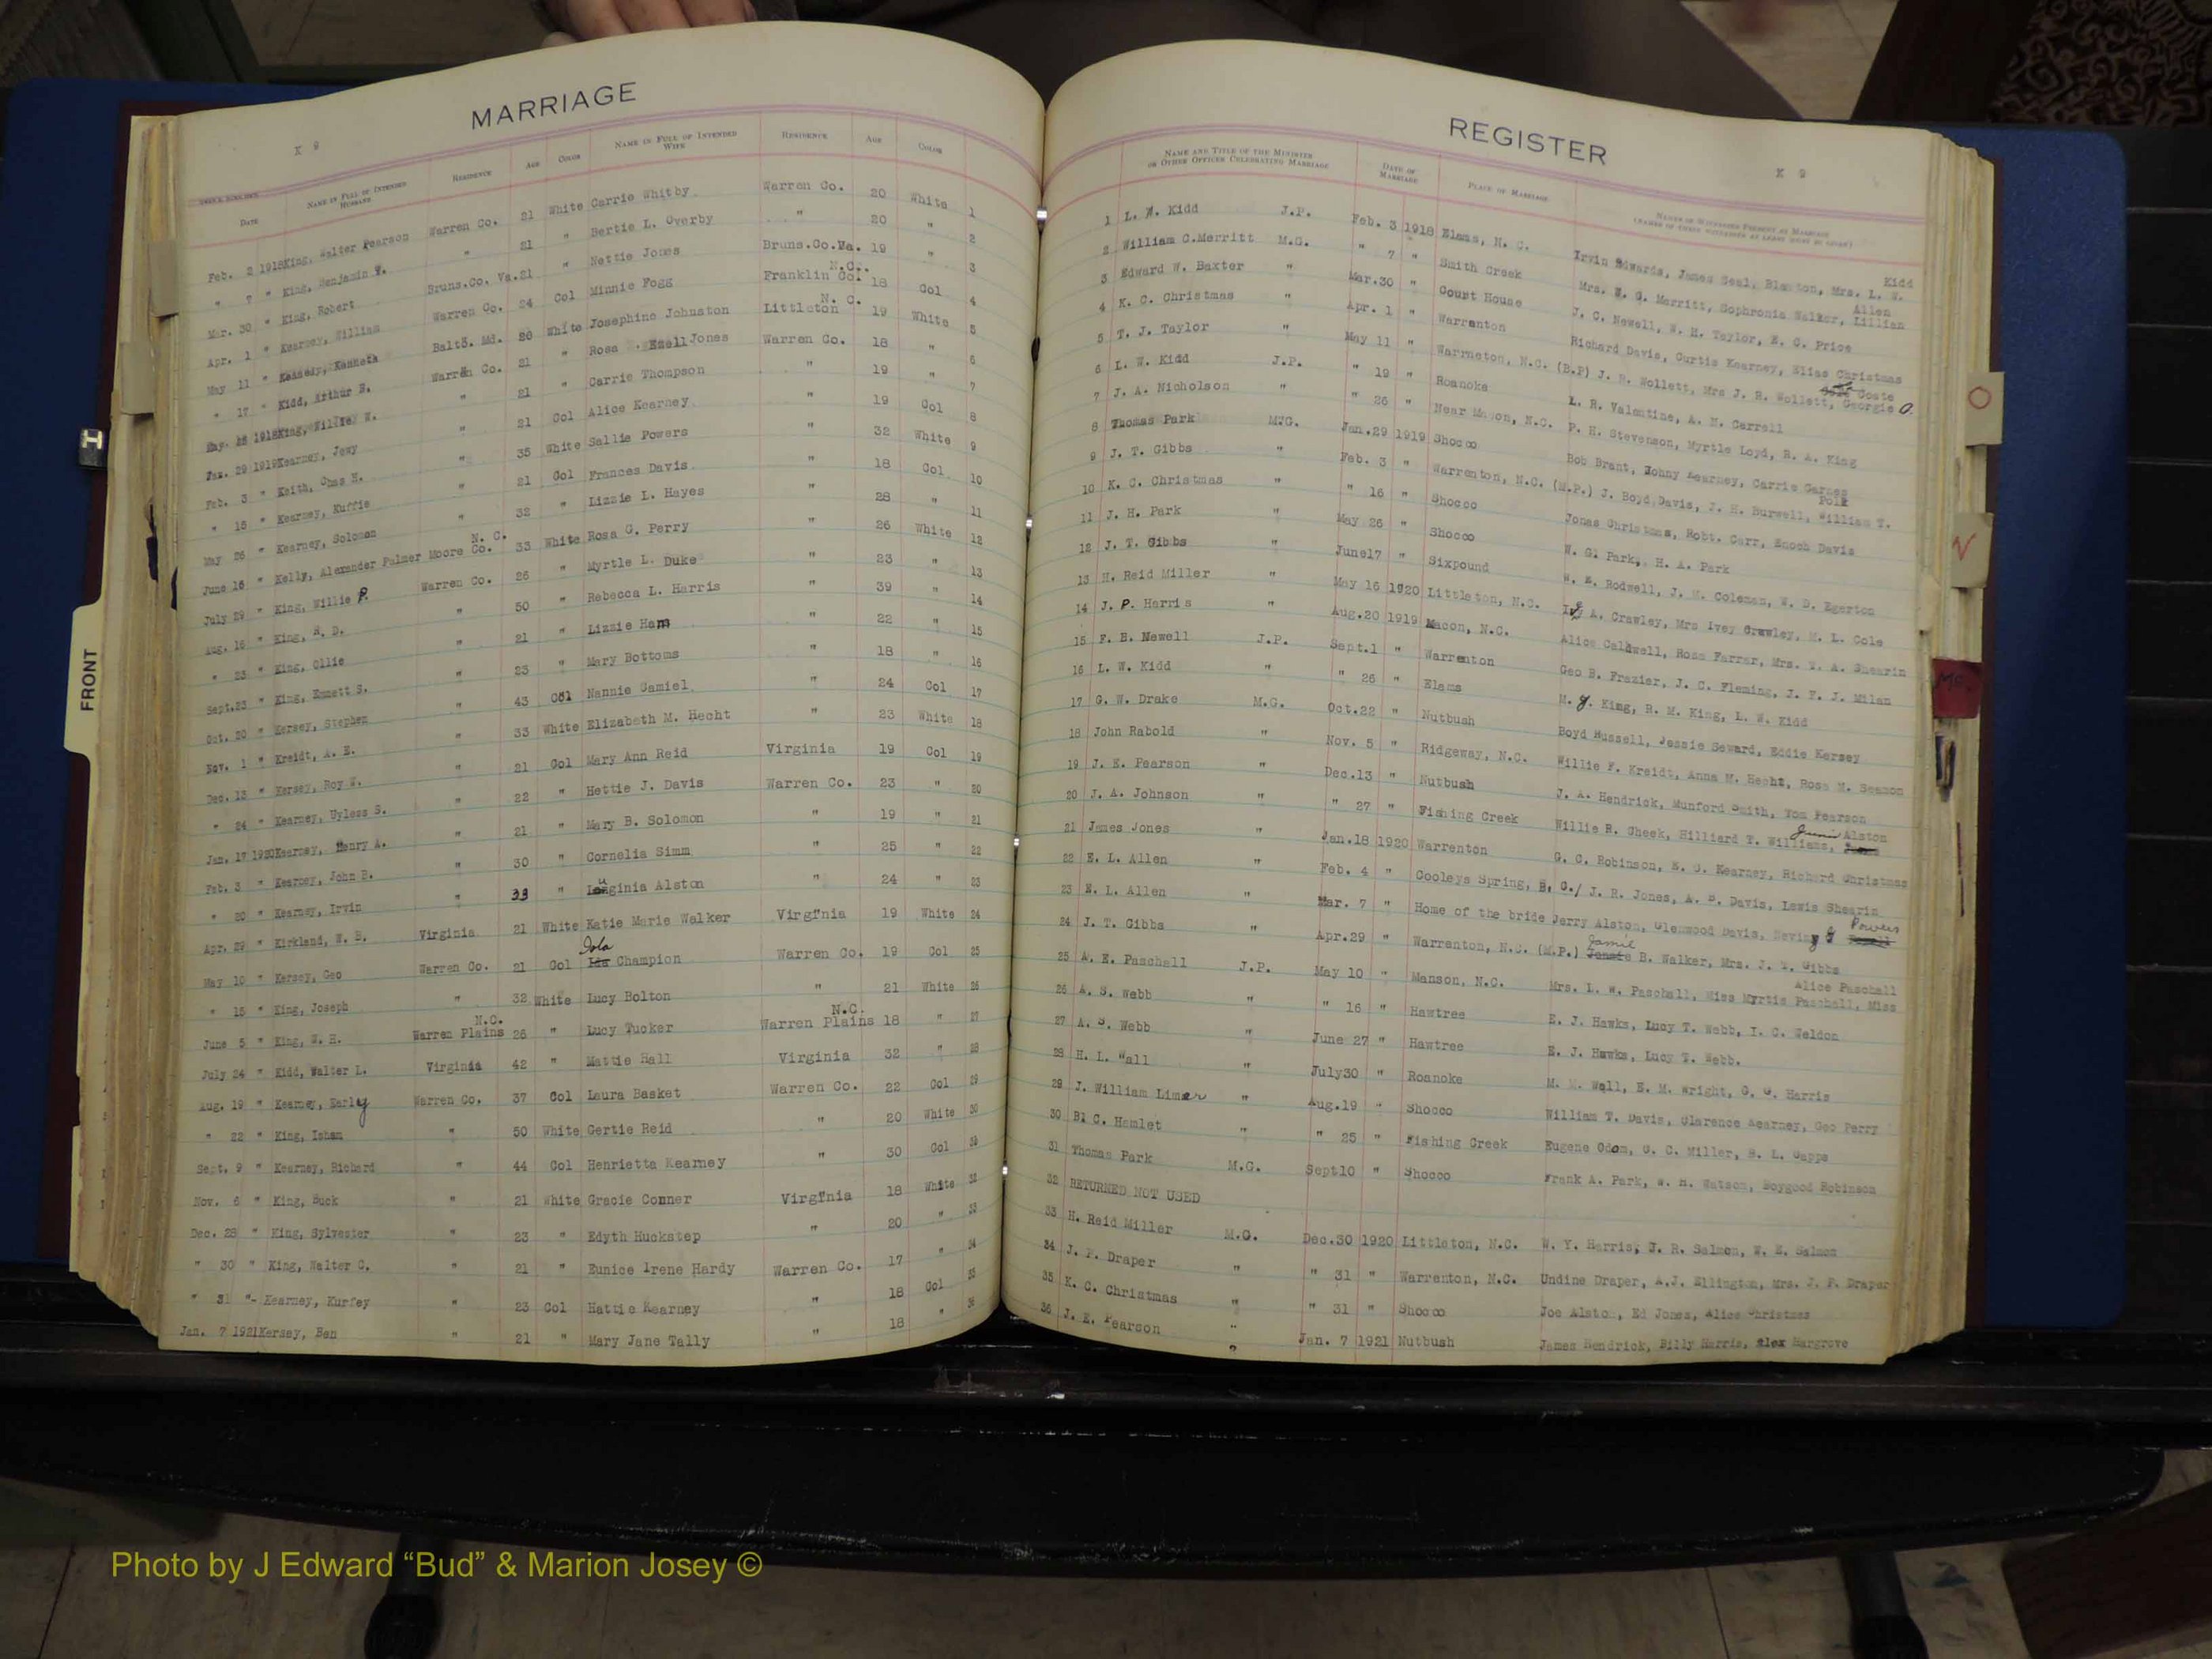 MARRIAGE
K 9
DATE NAME IN FULL OF INTENDED HUSBAND RESIDENCE AGE COLOR NAME IN FULL OF INTENDED WIFE RESIDENCE AGE COLOR
Feb. 2 1918 King, Walter Pearson Warren Co. 21 White Carrie Whitby Warren Co. 20 White 1
" 7 " King, Benjamin W. " 21 " Bertie L. Overby " 20 " 2
Mar. 30 " King, Robert Bruns.Co. Va. 21 " Nettie Jones Bruns.Co.Va. 19 " 3
Apr. 1 " Kearney, William Warren Co. 24 Col Minnie Fogg Franklin Co. N.C. 18 Col 4
May 11 " Kenneth Balto. Md. White Josephine Johnston Littleton N. C. 19 White 5
" 17 " Kidd, Arthur B. Warren Co. 21 " Rosa Ezell Jones Warren Co. 18 " 6
1918 King, W. " 21 " Carrie Thompson " 19 " 7
Jan. 29 1919 Kearney, Joey " 21 Col Alice Kearney " 19 Col 8
Feb. 3 " Keith, Chas N. " 35 White Sallie Powers " 32 White 9
" 15 " Kearney, Kuffie " 21 Col Frances Davis " 18 Col 10
May 26 " Kearney, Solomon " 32 " Lizzie L. Hayes " 28 " 11
June 16 " Kelly, Alexander Palmer Moore Co. N. C. 33 White Rosa G. Perry " 26 White 12
July 29 " King, Willie P. Warren Co. 26 " Myrtle L. Duke " 23 " 13
Aug. 16 " King, R. D. " 50 " Rebecca L. Harris " 39 " 14
" 23 " King, Ollie " 21 " Lizzie Ham " 22 " 15
Sept.23 " King, Emmett S. " 23 " Mary Bottoms " 18 " 16
Oct. 20 " Kersey, Stephen " 43 Col Nannie Gamiel " 24 Col 17
Nov. 1 " Kreidt, A. E. " 33 White Elizabeth M. Hecht " 23 White 18
Dec. 13 " Kersey, Roy W. " 21 Col Mary Ann Reid Virginia 19 Col 19
" 24 " Kearney, Uyless S. " 22 " Hettie J. Davis Warren Co. 23 " 20
Jan. 17 1920 Kearney, Henry A. " 21 " Mary B. Solomon " 19 " 21
Feb. 3 " Kearney, John B. " 30 " Cornelia Simm " 25 " 22
" 20 " Kearney, Irvin " 33 " Alston " 24 " 23
Apr. 29 " Kirkland, W. B. Virginia 21 White Katie Marie Walker Virginia 19 White 24
May 10 " Kersey, Geo Warren Co. 21 Col Iola Champion Warren Co. 19 Col 25
" 15 " King, Joseph " 32 White Lucy Bolton " 21 White 26
June 5 " King, W. H. Warren Plains N.C. 26 " Lucy Tucker Warren Plains N.C. 18 " 27
July 24 " Kidd, Walter L. Virginia 42 " Mattie Hall Virginia 32 " 28
Aug. 19 " Kearney, Early Warren Co. 37 Col Laura Basket Warren Co. 22 Col 29
" 22 " King, Isham " 50 White Gertie Reid " 20 White 30
Sept. 9 " Kearney, Richard " 44 Col Henrietta Kearney " 30 Col
Nov. 6 " King, Buck " 21 White Gracie Conner Virginia 18 White 32
Dec. 28 " King, Sylvester " 23 " Edyth Huckstep " 20 " 33
" 30 " King, Walter C. " 21 " Eunice Irene Hardy Warren Co. 17 " 34
" 31 "- Kearney, Kurfey " 23 Col Hattie Kearney " 18 Col 35
Jan. 7 1921 Kersey, Ben " 21 " Mary Jane Tally " 18 " 36
REGISTER
K 9
NAME AND TITLE OF THE MINISTER OR OTHER OFFICER CELEBRATING MARRIAGE DATE OF MARRIAGE PLACE OF MARRIAGE NAMES OF WITNESSES PRESENT AT MARRIAGE
1 L. W. Kidd J.P. Feb. 3 1918 Elams, N. C. Irvin Edwards, James Seal, Blanton, Mrs. L. W. Kidd
2 William C.Merritt M.G. " 7 " Smith Creek Mrs. W. C. Merritt, Sophronia Walker, Lillian Allen
3 Edward W. Baxter " Mar.30 " Court House J. C. Newell, W. H. Taylor, E. C. Price
4 K. C. Christmas " Apr. 1 " Warrenton Richard Davis, Curtis Kearney, Elias Christmas
5 T. J. Taylor " May 11 " Warrneton, N.C. (B.P) J. R. Wollett, Mrs J. R. Wollett, Georgie O. Coste
6 L. W. Kidd J.P. " 19 " Roanoke L. R. Valentine, A. N. Carroll
7 J. A. Nicholson " " 26 " Near Macon, N.C. P. H. Stevenson, Myrtle Loyd, R. A. King
8 Thomas Park M.G. Jan.29 1919 Shocco Bob Brant, Johny Kearney, Carrie Garnes
9 J. T. Gibbs " Feb. 3 " Warrenton, N.C. (M.P.) J. Boyd Davis, J. H. Burwell, William T. Polk
10 K. C. Christmas " " 16 " Shocco Jonas Christmas, Robt. Carr, Enoch Davis
11 J. H. Park " May 26 " Shocco W. G. Park, H. A. Park
12 J. T. Gibbs " June17 " Sixpound W. E. Rodwell, J. M. Coleman, W. D. Egerton
13 H. Reid Miller " May 16 1920 Littleton, N.C. A. Crawley, Mrs Ivey Crawley, M. L. Cole
14 J. P. Harris " Aug.20 1919 Macon, N.C. Alice Caldwell, Rosa Farrar, Mrs. V. A. Shearin
15 F. B. Newell J.P. Sept.1 " Warrenton Geo B. Frazier, J. C. Fleming, J. F. J. Milam
16 L. W. Kidd " " 26 " Elams M. J. King, R. M. King, L. W. Kidd
17 G. W. Drake M.G. Oct.22 " Nutbush Boyd Russell, Jessie Seward, Eddie Kersey
18 John Rabold " Nov. 5 " Ridgeway, N.C. Willie F. Kreidt, Anna M. Hecht, Rosa M. Seamon
19 J. E. Pearson " Dec.13 " Nutbush J. A. Hendrick, Munford Smith, Tom Pearson
20 J. A. Johnson " " 27 " Fishing Creek Willie R. Cheek, Hilliard T. Williams, Junie Alston
21 James Jones " Jan.18 1920 Warrenton G. C. Robinson, E. G. Kearney, Richard Christmas
22 E. L. Allen " Feb. 4 " Cooleys Spring, B. C./ J. R. Jones, A. S. Davis, Lewis Shearin
23 E. L. Allen " Mar. 7 " Home of the bride Jerry Alston, Glenwood Davis, Powers
24 J. T. Gibbs " Apr.29 " Warrenton, N.C. (M.P.) Jamie B. Walker, Mrs. J. T. Gibbs
25 A. E. Paschall J.P. May 10 " Manson, N.C. Mrs. L. W. Paschall, Miss Myrtis Paschall, Miss Alice Paschall
26 A. S. Webb " " 16 " Hawtree E. J. Hawks, Lucy T. Webb, I. C. Weldon
27 A. S. Webb " June 27 " Hawtree E. J. Hawks, Lucy T. Webb.
28 H. L. Wall " July30 " Roanoke M. M. Wall, E. M. Wright, G. G. Harris
29 J. William Limer " Aug.19 " Shocco William T. Davis, Clarence Kearney, Geo Perry
30 Bl C. Hamlet " " 25 " Fishing Creek Eugene Odom, G. C. Miller, S. L. Capps
31 Thomas Park M.G. Sept10 " Shocco Frank A. Park, W. H. Watson, Boygood Robinson
32 RETURNED NOT USED
33 H. Reid Miller M.G. Dec.30 1920 Littleton, N.C. W. Y. Harris, J. R. Salmon, W. E. Salmon
34 J. P. Draper " " 31 " Warrenton, N.C. Undine Draper, A.J. Ellington, Mrs. J. P. Draper
35 K. C. Christmas " " 31 " Shocco Joe Alston, Ed Jones, Alice Christmas
36 J. E. Pearson " Jan. 7 1921 Nutbush James Hendrick, Billy Harris, Alex Hargrove
FRONT
O
N
Mc
Photo by J Edward “Bud” & Marion Josey ©